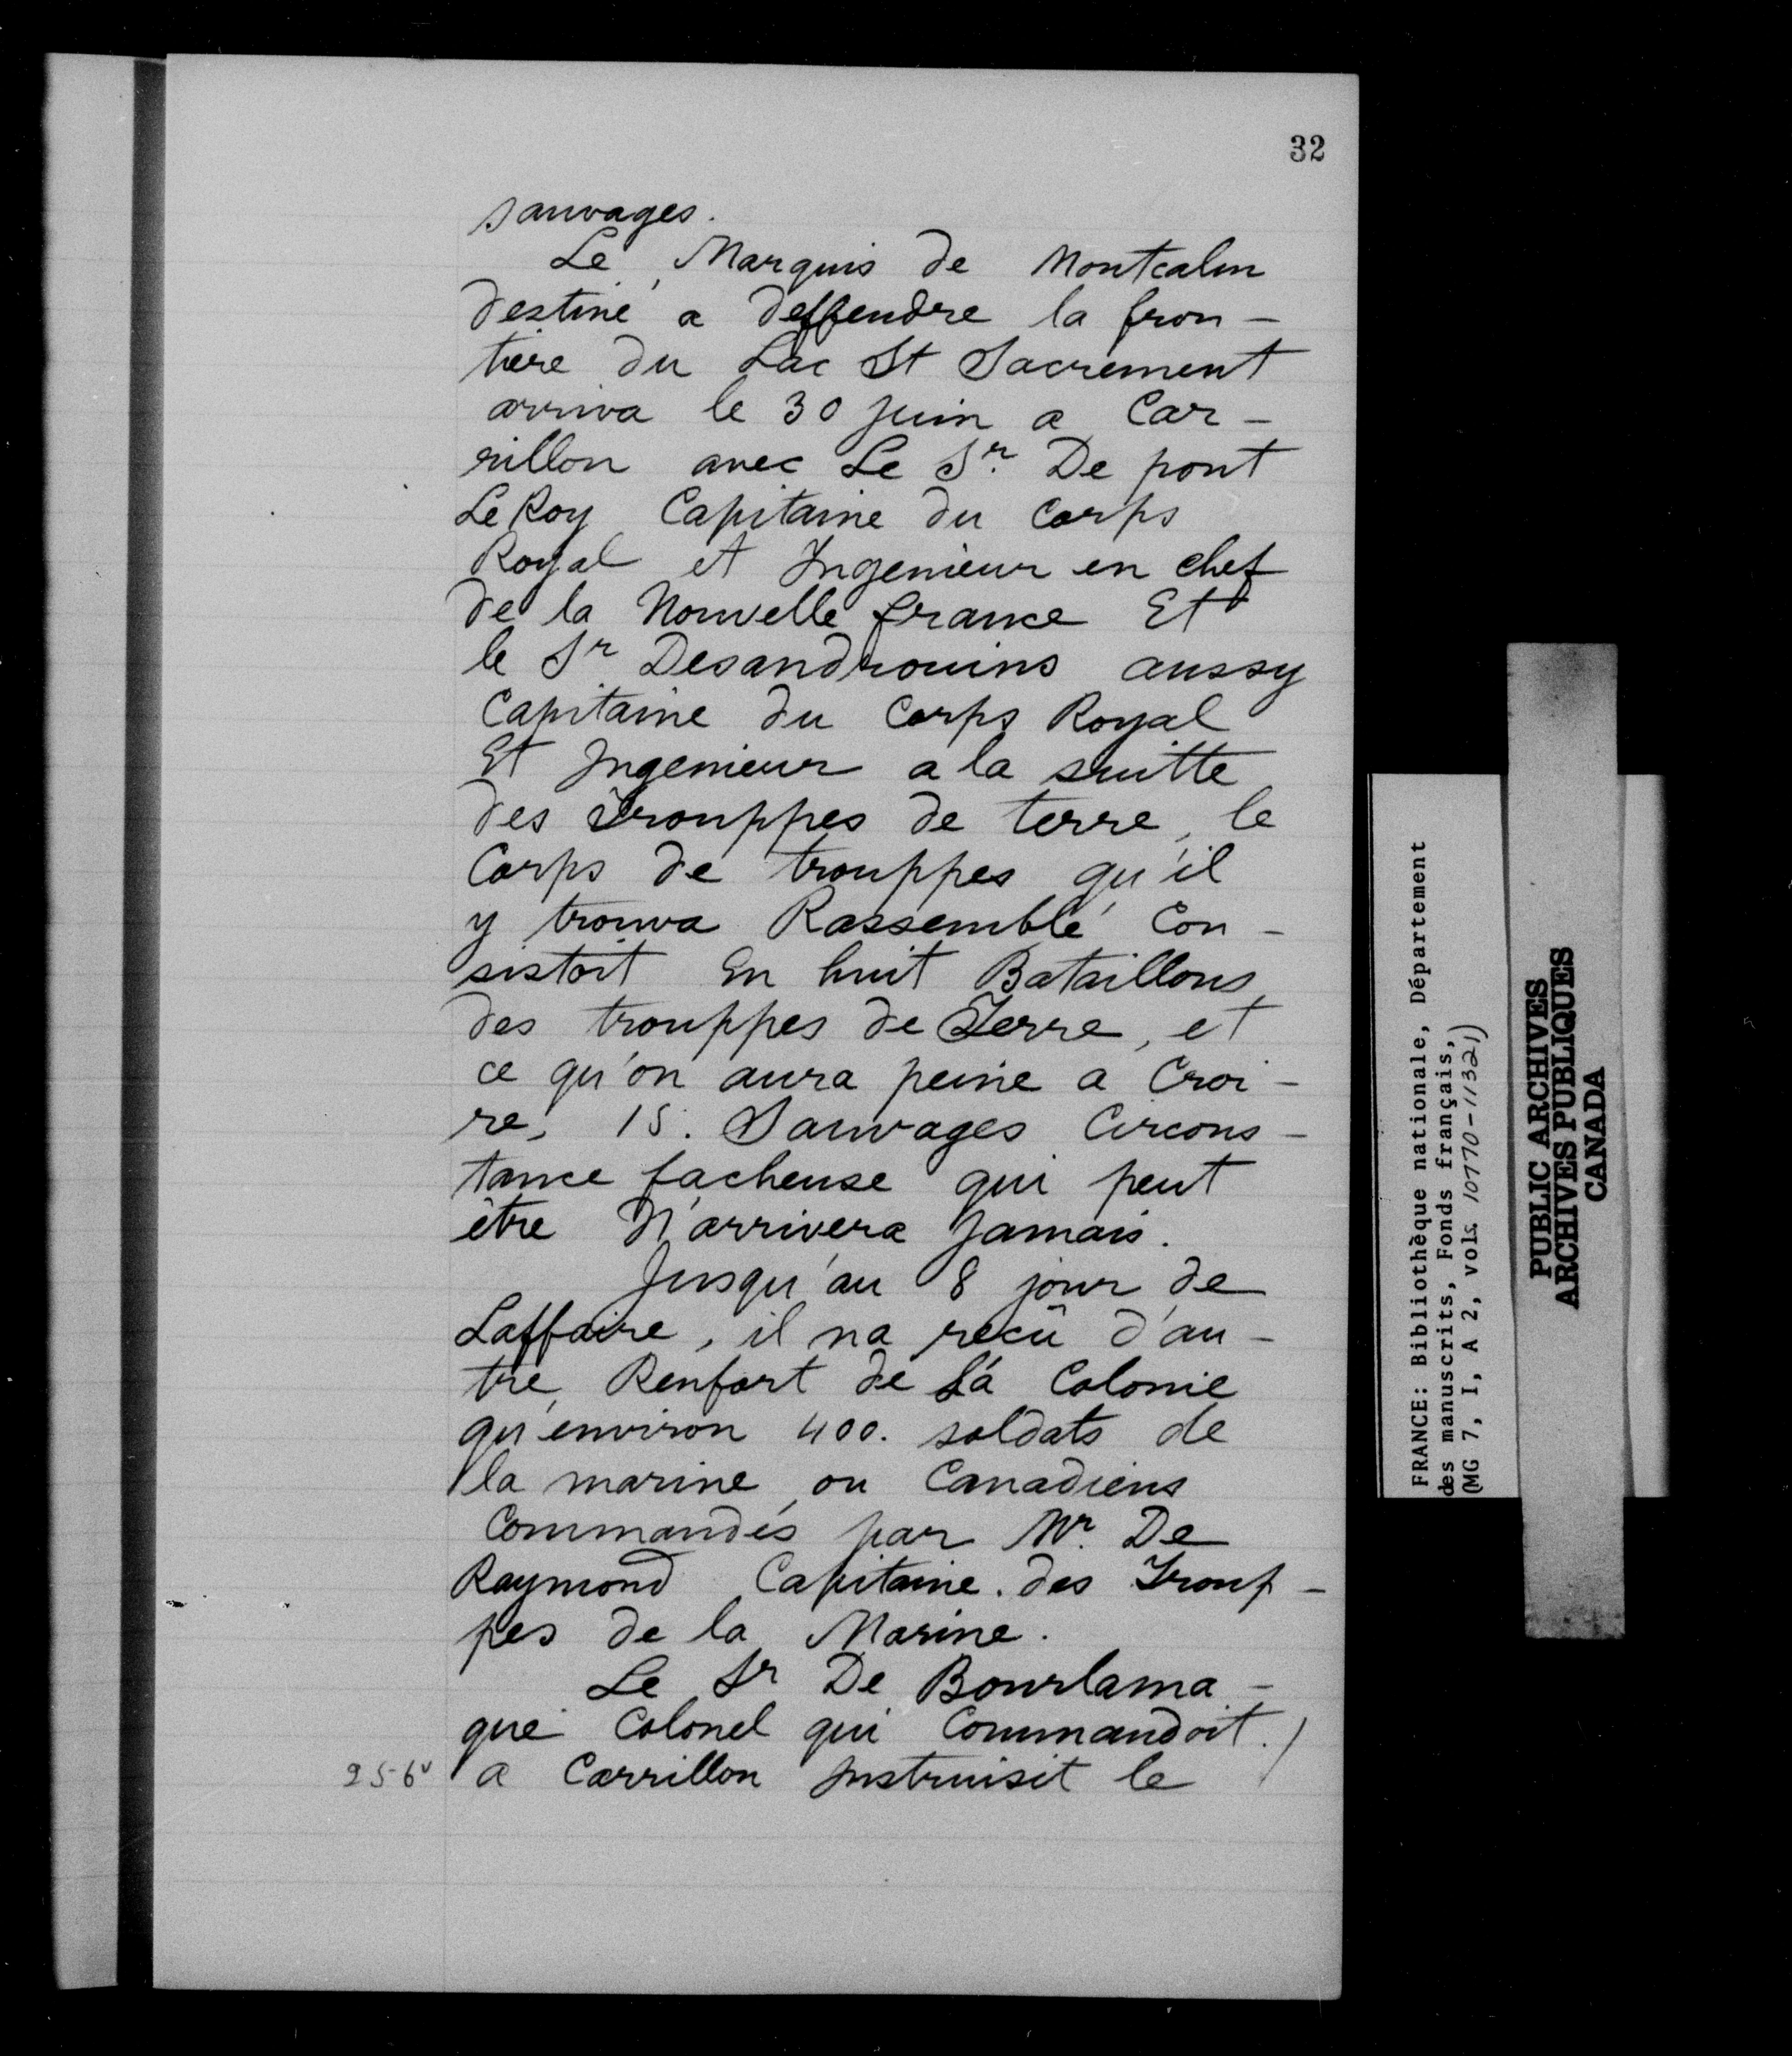 32
sauvages.
Le Marquis de Montcalm
destiné a deffendre la fron-
tiere du Lac St Sacrement
arriva le 30 juin a Car-
rillon avec Le Sr. De pont
LeRoy Capitaine du Corps
Royal et Ingenieur en chef
de la Nouvelle france Et
le Sr Desandrouins aussy
Capitaine du Corps Royal
Et Ingenieur a la suitte
des Trouppes de terre, le
Corps de trouppes qu'il
y trouva Rassemblé Con-
sistoit En huit Bataillons
des trouppes de Terre, et
ce qu'on aura peine a Croi-
re, 15. Sauvages Circons-
tance facheuse qui peut
être N'arrivera Jamais.
Jusqu'au 8 jour de
Laffaire, il na recû d'au-
tre Renfort de La Colonie
qu'environ 400. soldats de
la marine ou Canadiens
Commandés par Mr. De
Raymond Capitaine. des Troup-
pes de la Marine.
Le Sr De Bourlama-
que Colonel qui Commandoit./
256v a Carrillon Instruisit le
FRANCE: Bibliothèque nationale, Département
des manuscrits, Fonds français,
(MG 7, I, A 2, vols. 10770-11321)
PUBLIC ARCHIVES
ARCHIVES PUBLIQUES
CANADA